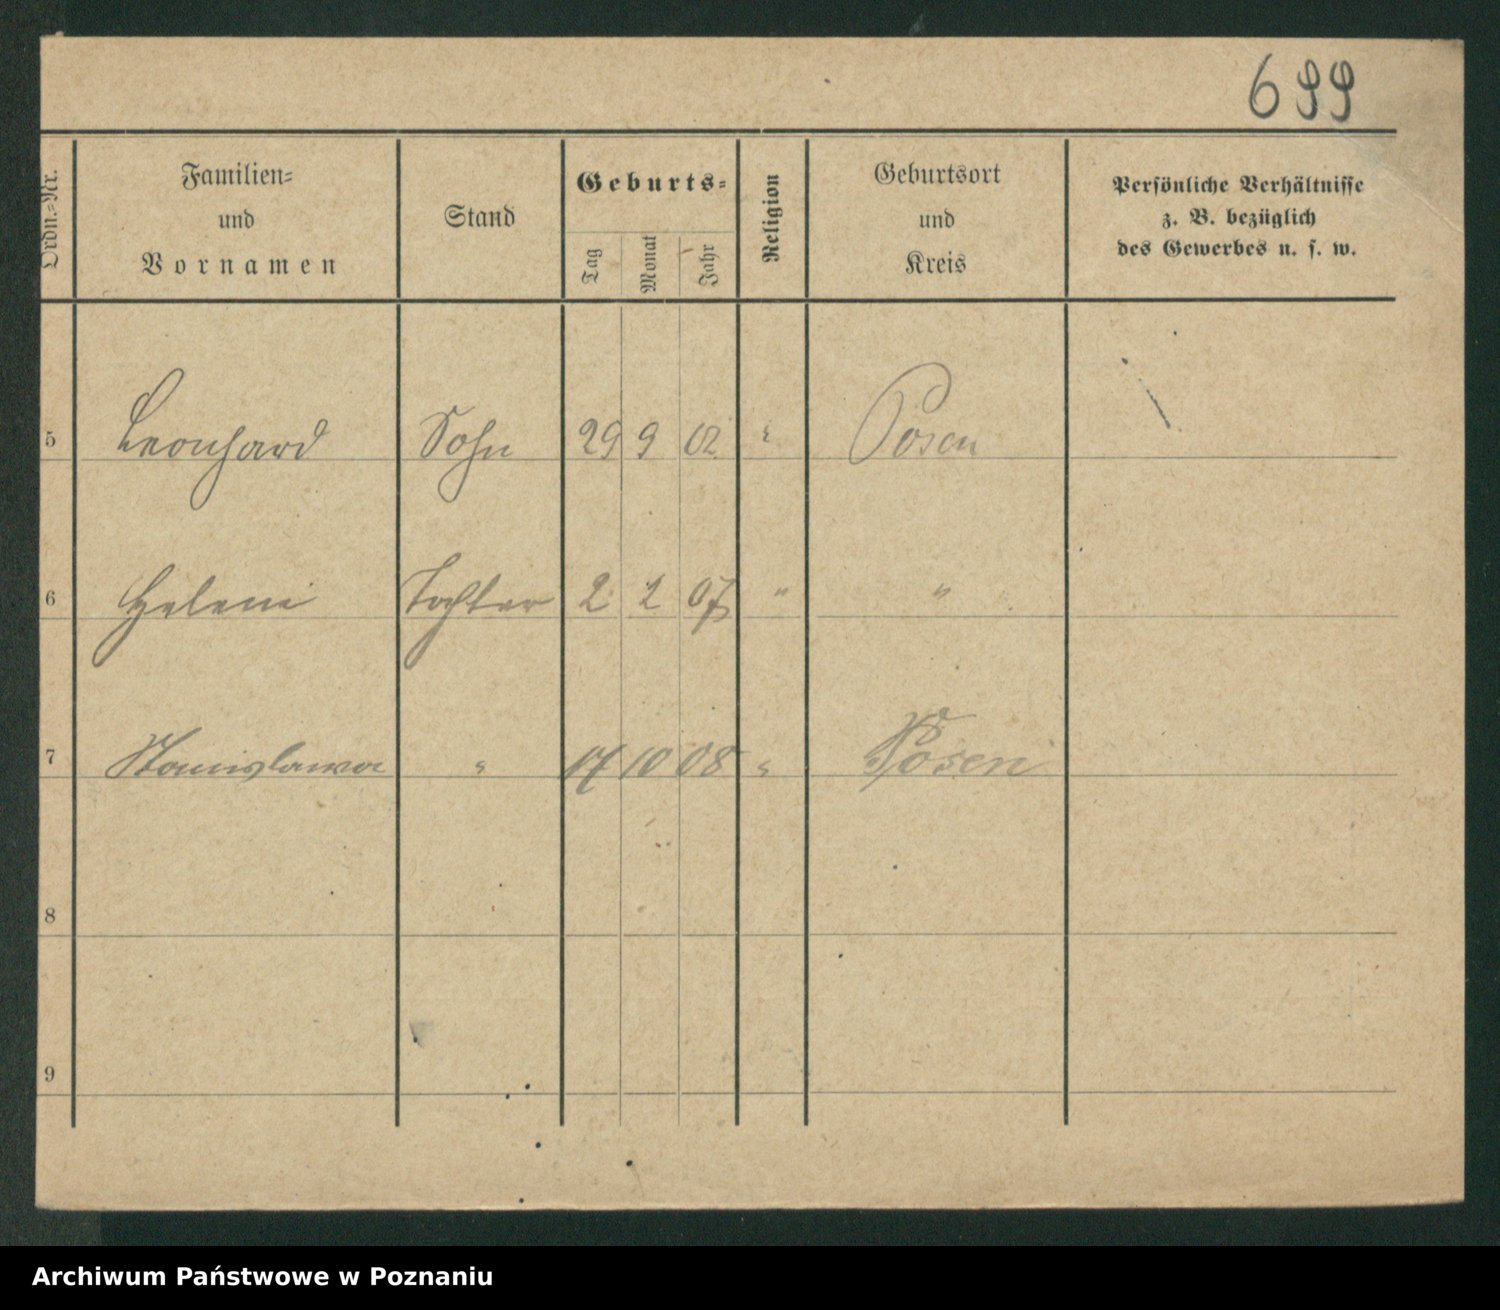 699
Ordn.=Nr.
Familien=
und
Vornamen
Stand
Geburts=
Tag
Monat
Jahr
Religion
Geburtsort
und
Kreis
Persönliche Verhältnisse
z. B. bezüglich
des Gewerbes u. s. w.
5 Leonhard Sohn 29 9 02 " Posen
6 Helene Tochter 2 2 07 " "
7 Stanislawa " 17 10 08 " Posen
8
9
Archiwum Państwowe w Poznaniu